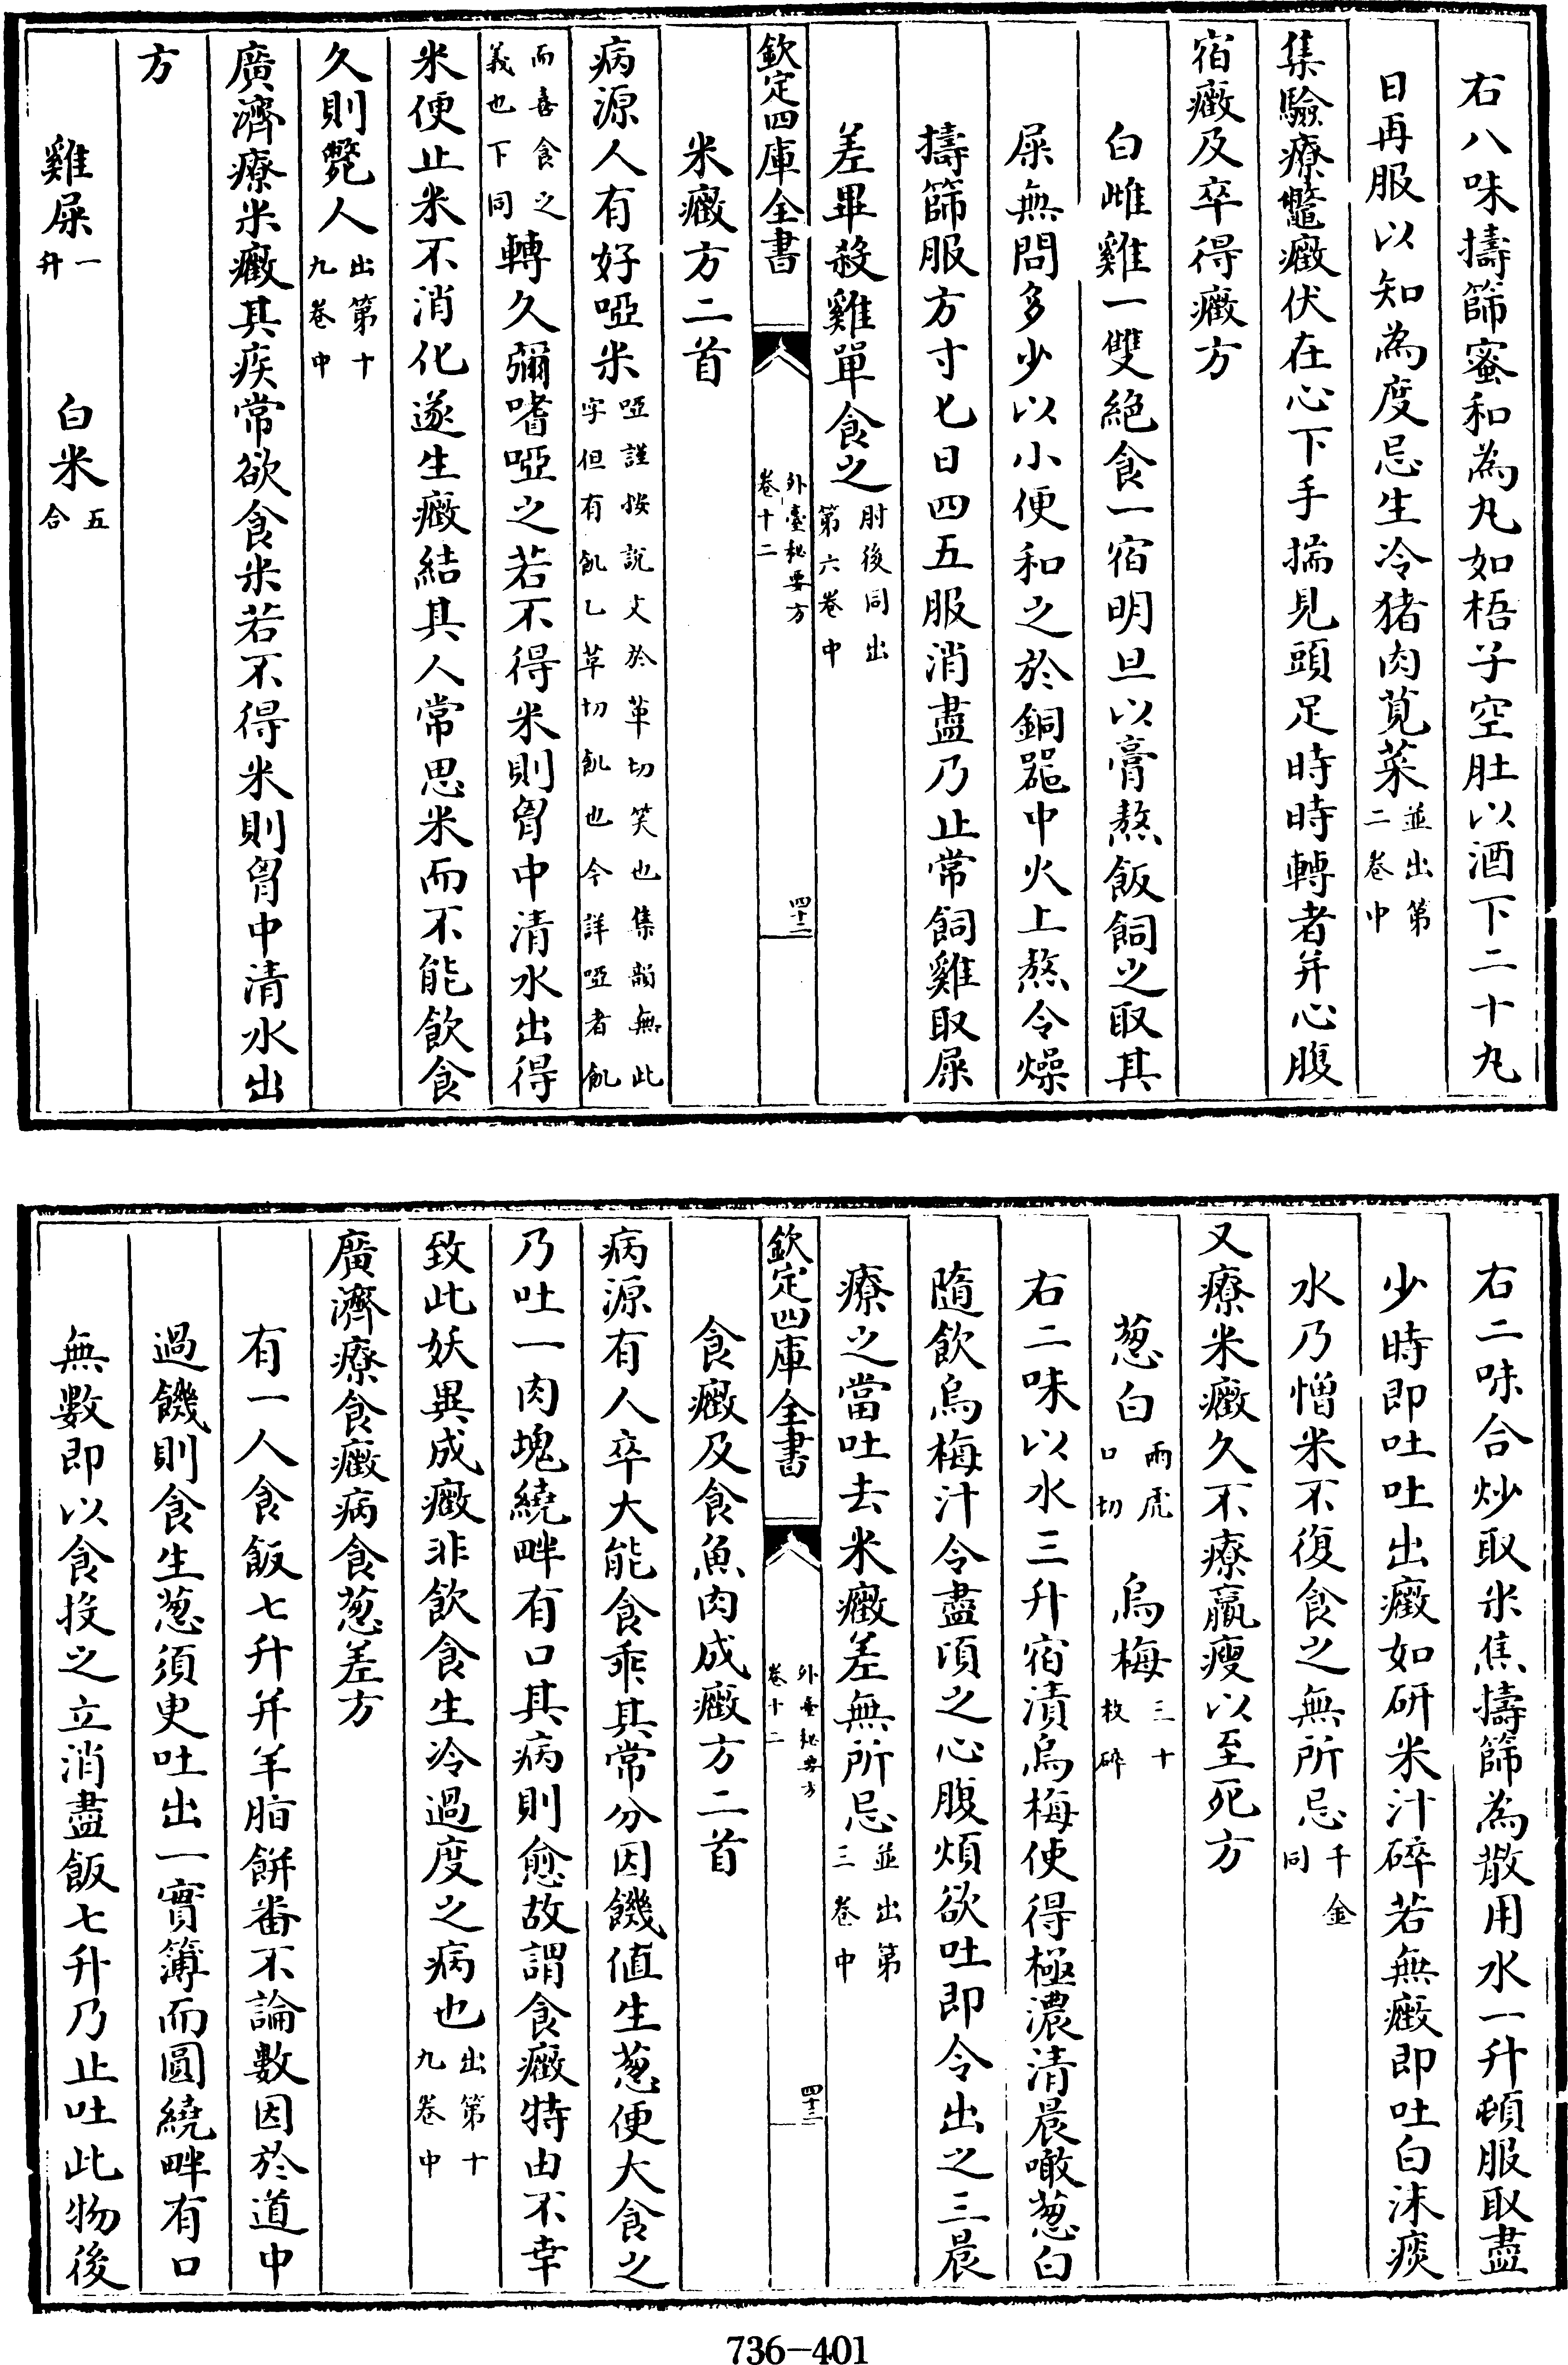 右八味擣篩蜜和為丸如梧子空肚以酒下二十丸
日再服以知為度忌生冷猪肉莧菜並出第二卷中
集驗療鼈癥伏在心下手揣見頭足時時轉者并心腹
宿癥及卒得癥方
白雌雞一雙絶食一宿明旦以膏熬飯飼之取其
屎無問多少以小便和之於銅器中火上熬令燥
擣篩服方寸匕日四五服消盡乃止常飼雞取屎
差畢殺雞單食之肘後同出第六卷中
欽定四庫全書 外臺秘要方卷十二 四十二
米癥方二首
病源人有好啞米啞謹按說文於革切笑也集韻無此字但有飢乙革切飢也今詳啞者飢
而喜食之義也下同轉久彌嗜啞之若不得米則胷中清水出得
米便止米不消化遂生癥結其人常思米而不能飲食
久則斃人出第十九卷中
廣濟療米癥其疾常欲食米若不得米則胷中清水出
方
雞屎一升 白米五合
右二味合炒取米焦擣篩為散用水一升頓服取盡
少時即吐吐出癥如研米汁碎若無癥即吐白沫痰
水乃憎米不復食之無所忌千金同
又療米癥久不療羸瘦以至死方
葱白兩虎口切 烏梅三十枚碎
右二味以水三升宿漬烏梅使得極濃清晨噉葱白
隨飲烏梅汁令盡頃之心腹煩欲吐即令出之三晨
療之當吐去米癥差無所忌並出第三卷中
欽定四庫全書 外臺秘要方卷十二 四十三
食癥及食魚肉成癥方二首
病源有人卒大能食乖其常分因饑值生葱便大食之
乃吐一肉塊繞畔有口其病則愈故謂食癥特由不幸
致此妖異成癥非飲食生冷過度之病也出第十九卷中
廣濟療食癥病食葱差方
有一人食飯七升并羊脂餅番不論數因於道中
過饑則食生葱須臾吐出一實簿而圓繞畔有口
無數即以食投之立消盡飯七升乃止吐此物後
736-401